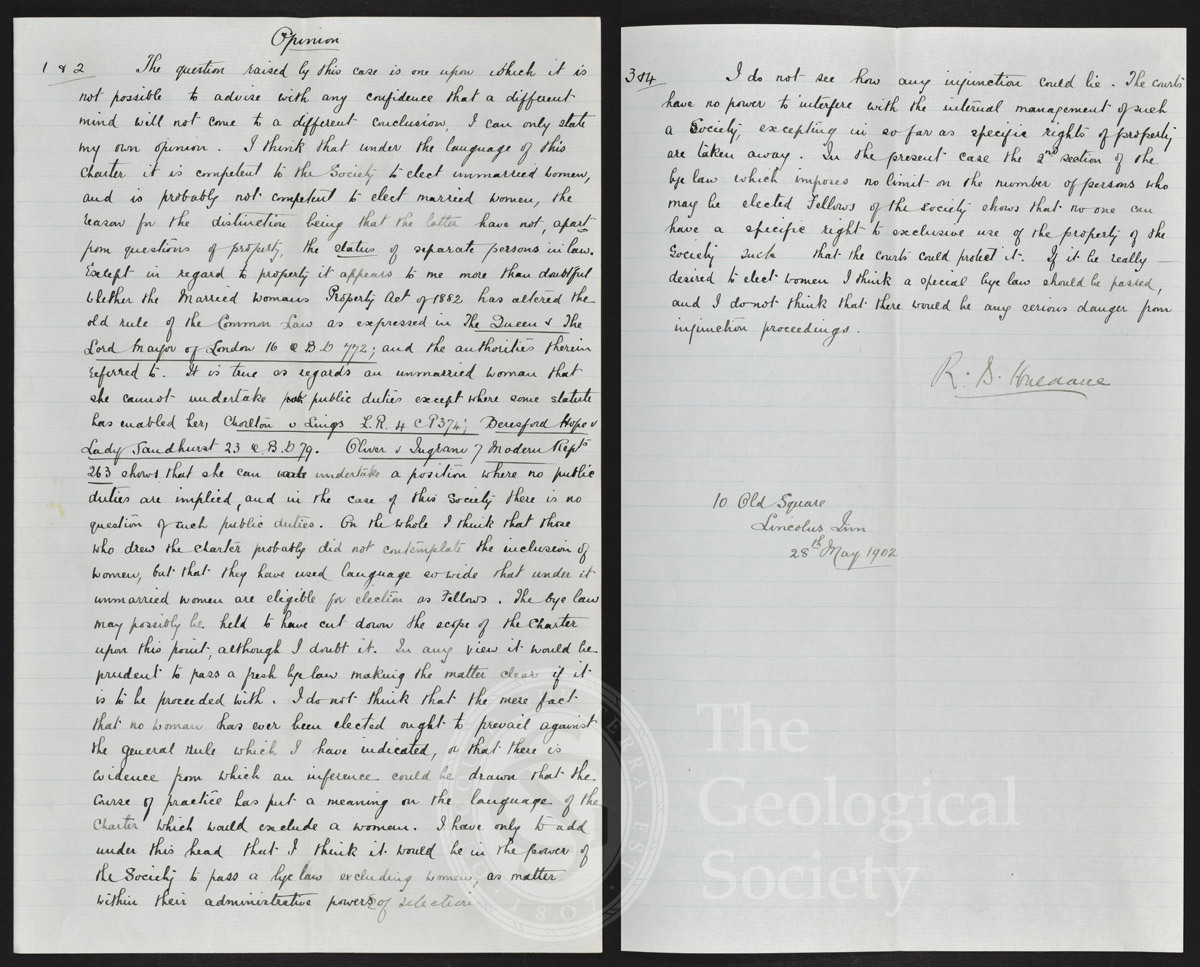 Opinion
1 & 2 The question raised by this case is one upon which it is
not possible to advise with any confidence that a different
mind will not come to a different conclusion, I can only state
my own opinion. I think that under the language of this
Charter it is competent to the Society to elect unmarried women,
and is probably not competent to elect married women, the
reason for the distinction being that the latter have not, apart
from questions of property, the status of separate persons in law.
Except in regard to property it appears to me more than doubtful
whether the Married Womans Property Act of 1882 has altered the
old rule of the Common Law as expressed in The Queen v The
Lord Mayor of London 16 Q.B.D 772; and the authorities therein
referred to. It is true as regards an unmarried woman that
she cannot undertake public duties except where some statute
has enabled her, Chorlton v Lings L.R. 4 C P 374; Beresford Hope v
Lady Sandhurst 23 Q.B.D 79. Oliver v Ingram 7 Modern Repts
263 shows that she can undertake a position where no public
duties are implied, and in the case of this Society there is no
question of such public duties. On the whole I think that those
who drew the Charter probably did not contemplate the inclusion of
women, but that they have used language so wide that under it
unmarried women are eligible for election as Fellows. The bye law
may possibly be held to have cut down the scope of the Charter
upon this point, although I doubt it. In any view it would be
prudent to pass a fresh bye law making the matter clear if it
is to be proceeded with. I do not think that the mere fact
that no woman has ever been elected ought to prevail against
the general rule which I have indicated, or that there is
evidence from which an inference could be drawn that the
course of practice has put a meaning on the language of the
Charter which would exclude a woman. I have only to add
under this head that I think it would be in the power of
the Society to pass a bye law excluding women, as matter
within their administrative powers of selection.
3 & 4 I do not see how any injunction could lie. The Courts
have no power to interfere with the internal management of such
a Society, excepting in so far as specific rights of property
are taken away. In the present case the 2nd section of the
bye law which imposes no limit on the number of persons who
may be elected Fellows of the Society shows that no one can
have a specific right to exclusive use of the property of the
Society such that the courts could protect it. If it be really
desired to elect women I think a special bye law should be passed,
and I do not think that there would be any serious danger from
injunction proceedings.
R. B. Haldane
10 Old Square
Lincolns Inn
28th May 1902
The
Geological
Society
1807